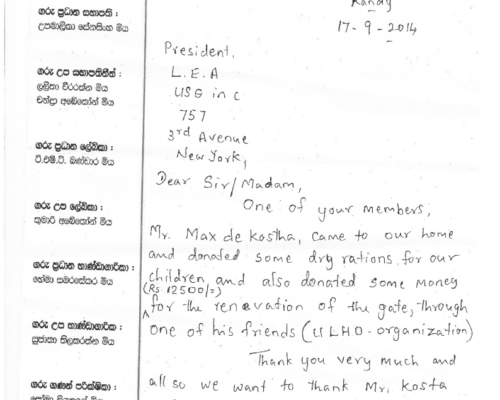 ගරු ප්‍රධාන සභාපති :
උපමාලිකා සේනසිංහ මිය
ගරු උප සභාපතිනීන් :
ලලිතා වීරරත්න මිය
චන්ද්‍රා අබේකෝන් මිය
ගරු ප්‍රධාන ලේඛිකා :
ටී.එම්.ටී. බණ්ඩාර මිය
ගරු උප ලේඛිකා :
කුමාරි අබේකෝන් මිය
ගරු ප්‍රධාන භාණ්ඩාගාරිකා :
හේමා සමරසේකර මිය
ගරු උප භාණ්ඩාගාරික :
සුජාතා තිලකරත්න මිය
ගරු ගණන් පරීක්ෂිකා :
Kandy
17-9-2014
President,
L.E.A
USG in C
757
3rd Avenue
New York,
Dear Sir/Madam,
One of your members,
Mr. Max de Kostha, came to our home
and donated some dry rations for our
children and also donated some money
(Rs 12500/=)
for the renevation of the gate, through
one of his friends (ULHO-organization)
Thank you very much and
all so we want to thank Mr. Kosta